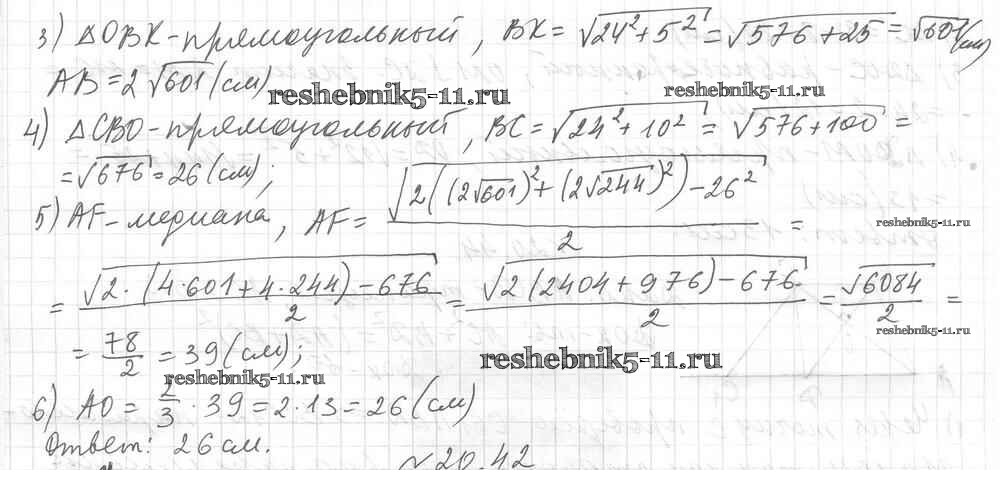 3) △OBK - прямоугольный, BK = √(24² + 5²) = √(576 + 25) = √601 (см)
AB = 2√601 (см)
reshebnik5-11.ru reshebnik5-11.ru
4) △CBO - прямоугольный, BC = √(24² + 10²) = √(576 + 100) =
= √676 = 26 (см);
5) AF - медиана, AF = √(2((2√601)² + (2√244)²) - 26²) / 2 =
reshebnik5-11.ru
= √(2·(4·601 + 4·244) - 676) / 2 = √(2(2404 + 976) - 676) / 2 = √6084 / 2 =
reshebnik5-11.ru
= 78/2 = 39 (см);
reshebnik5-11.ru
reshebnik5-11.ru
6) AO = 2/3 · 39 = 2·13 = 26 (см)
Ответ: 26 см.
№20.42